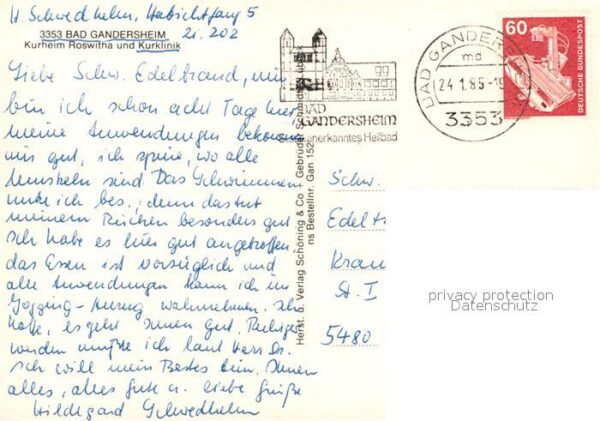 H. Schwedhelm, Habichtfang 5
Zi. 202
3353 BAD GANDERSHEIM
Kurheim Roswitha und Kurklinik
Liebe Schw. Edeltraud, nun
bin ich schon acht Tage hier
meine Anwendungen bekommen
mir gut, ich spüre, wo alle
Muskeln sind Das Schwimmen
ich bes., denn das tut
meinem Rücken besonders gut
Ich habe es hier gut angetroffen.
das Essen ist vorzüglich und
alle Anwendungen kann ich im
Jogging-Anzug wahrnehmen. Ich
hoffe, es geht Ihnen gut.
werden mußte ich laut
Ich will mein Bestes tun. Ihnen
alles, alles Gute u. liebe Grüße
Hildegard Schwedhelm
Herst. u. Verlag Schöning & Co + Gebrüder Schmidt
ns Bestellnr. Gan 152
BAD
GANDERSHEIM
anerkanntes Heilbad
BAD GANDER
md
24.1.85-1
3353
60
DEUTSCHE BUNDESPOST
Schw.
Edelt
Kran
St. I
5480
privacy protection
Datenschutz